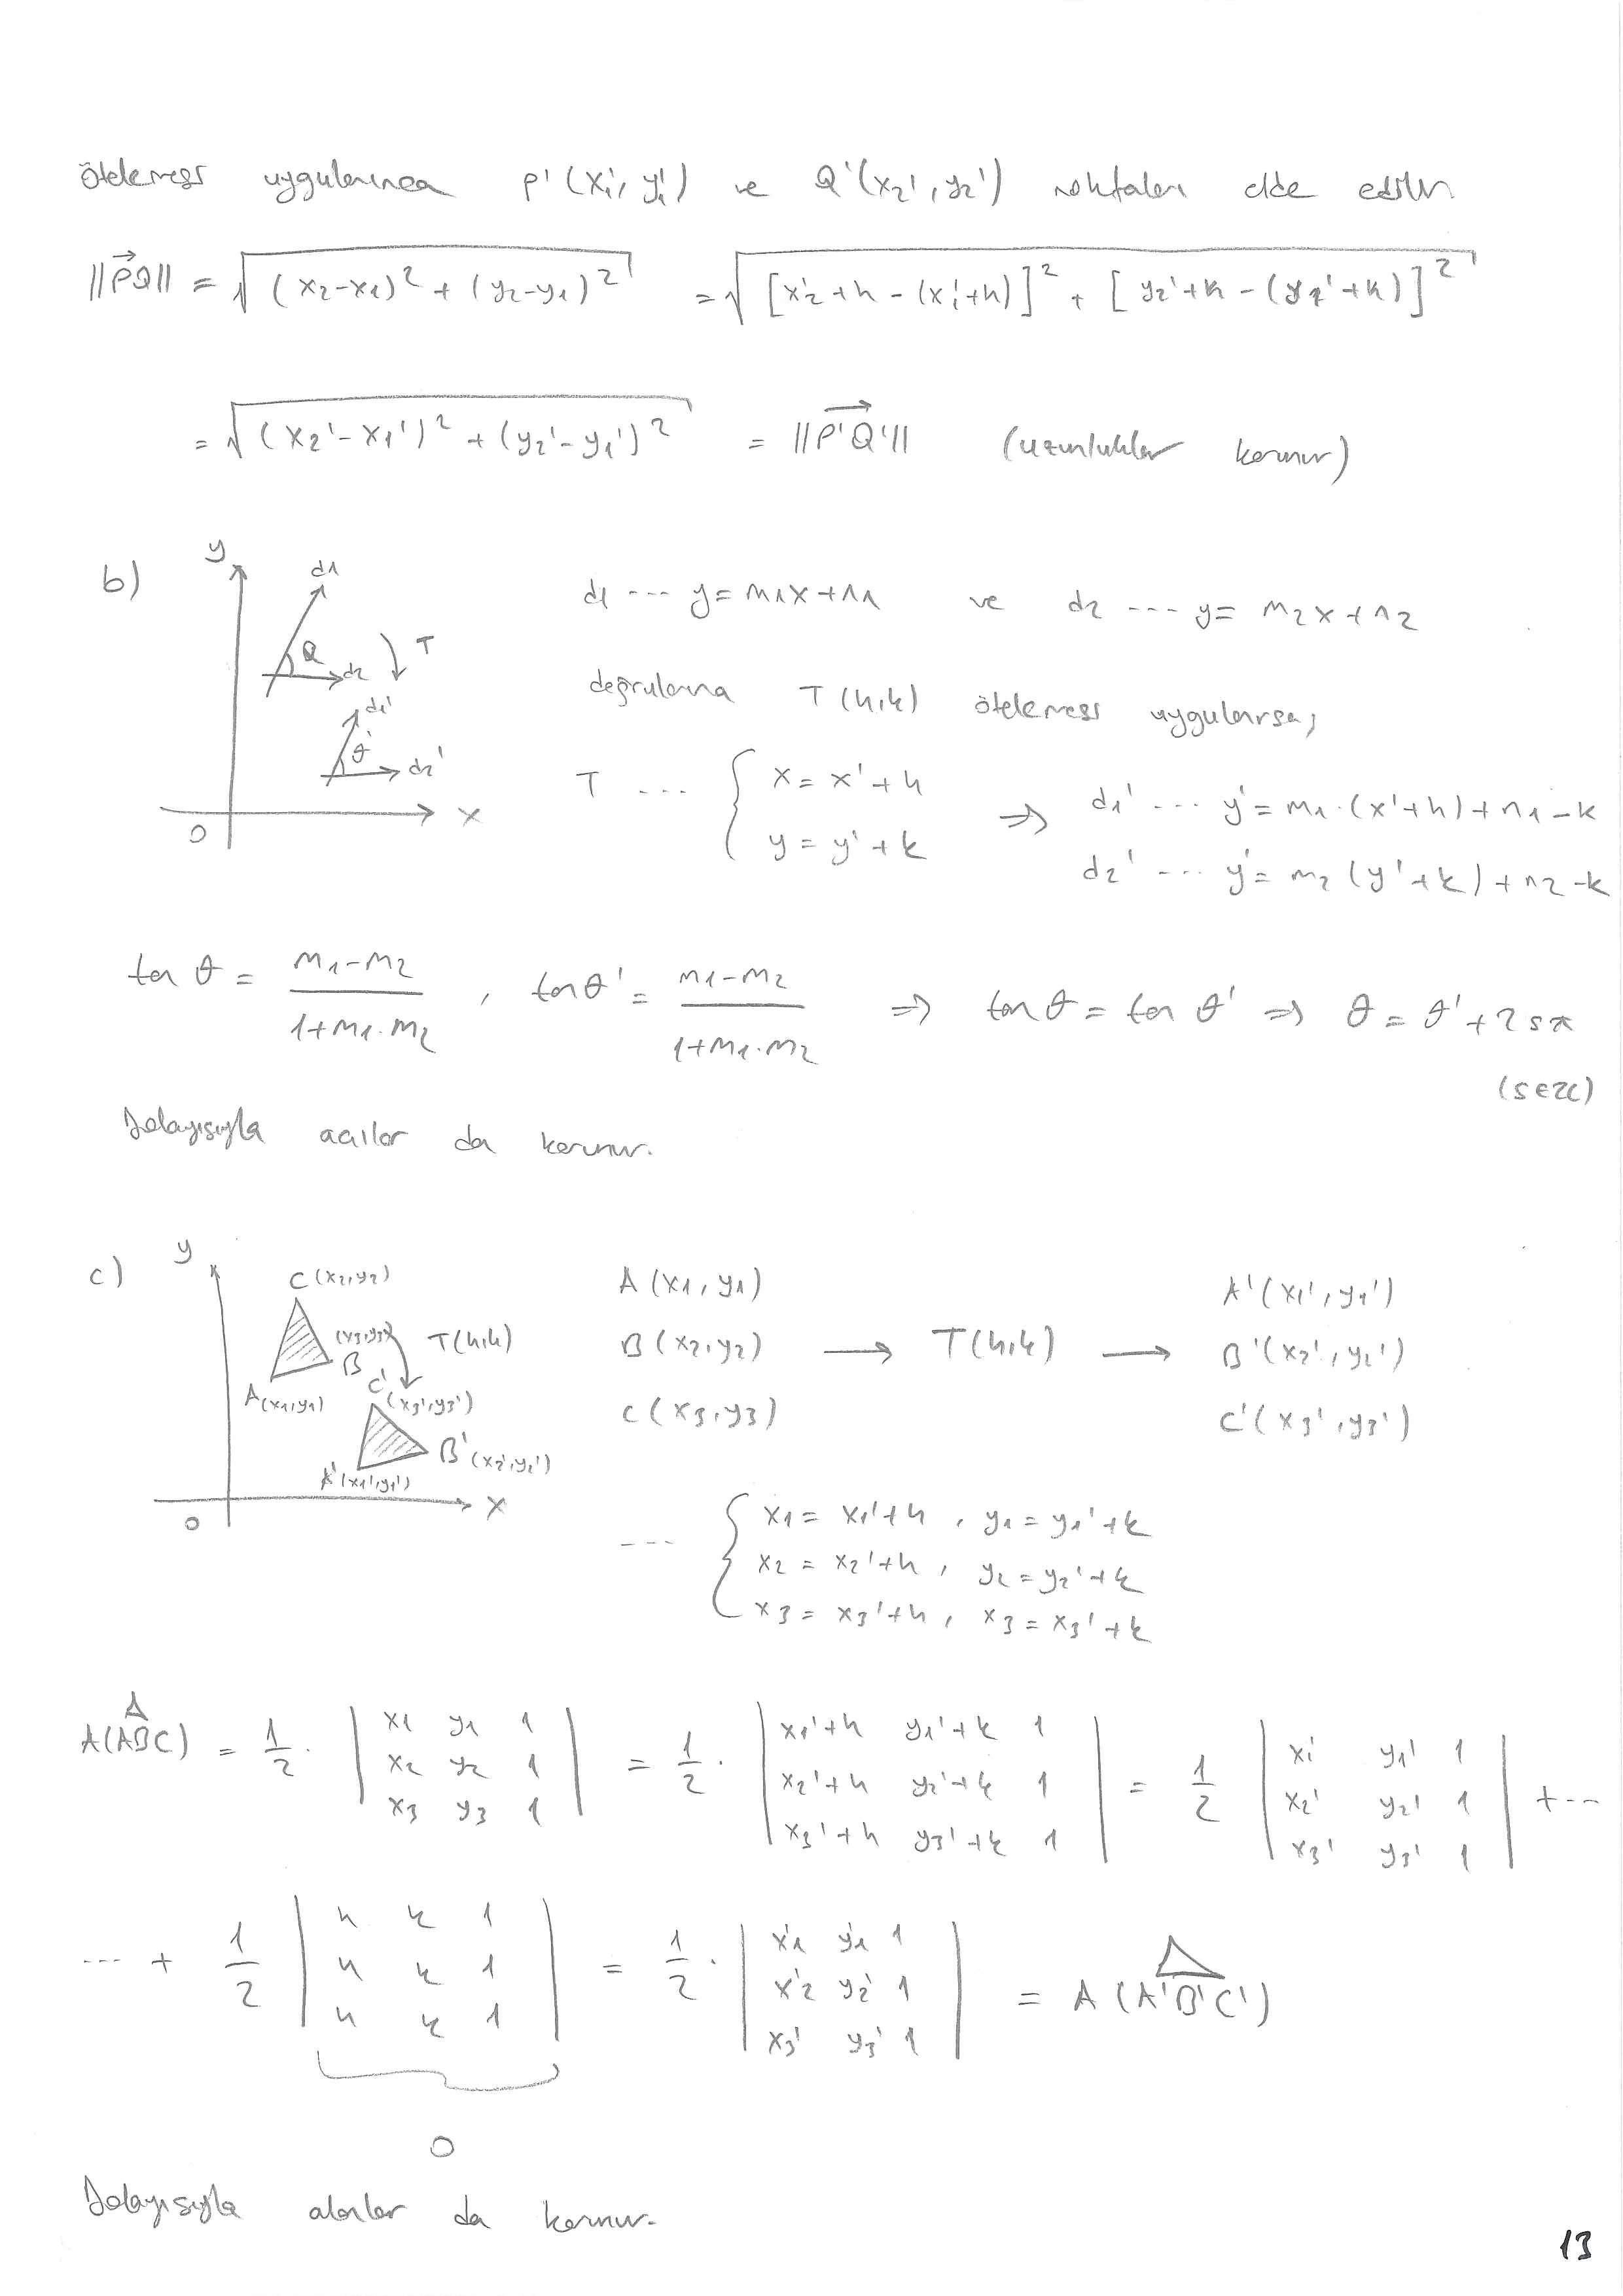 ötelemesi uygulanınca P'(x₁', y₁') ve Q'(x₂', y₂') noktaları elde edilir.
||PQ|| = √((x₂-x₁)² + (y₂-y₁)²) = √([x₂'+h-(x₁'+h)]² + [y₂'+k-(y₁'+k)]²)
= √((x₂'-x₁')² + (y₂'-y₁')²) = ||P'Q'|| (uzunluklar korunur)
b)
y
d1
θ
d2
T
d1'
θ'
d2'
x
O
d1 --- y = m1x+n1 ve d2 --- y = m2x+n2
doğrularına T(h,k) ötelemesi uygulanırsa;
T --- { x = x'+h
y = y'+k
⇒ d1' --- y' = m1.(x'+h)+n1-k
d2' --- y' = m2(y'+k)+n2-k
tan θ = (m1-m2)/(1+m1.m2) , tan θ' = (m1-m2)/(1+m1.m2) ⇒ tan θ = tan θ' ⇒ θ = θ'+2sπ
(s∈ℤ)
Dolayısıyla açılar da korunur.
c)
y
C(x2,y2)
(x3,y3)
B
A(x1,y1)
T(h,k)
C'(x3',y3')
B'(x2',y2')
A'(x1',y1')
x
O
A(x1,y1) A'(x1',y1')
B(x2,y2) → T(h,k) → B'(x2',y2')
C(x3,y3) C'(x3',y3')
--- { x1 = x1'+h , y1 = y1'+k
x2 = x2'+h , y2 = y2'+k
x3 = x3'+h , x3 = x3'+k
A(ABC) = 1/2 . | x1 y1 1 ; x2 y2 1 ; x3 y3 1 | = 1/2 . | x1'+h y1'+k 1 ; x2'+h y2'+k 1 ; x3'+h y3'+k 1 | = 1/2 | x1' y1' 1 ; x2' y2' 1 ; x3' y3' 1 | + ---
--- + 1/2 | h k 1 ; h k 1 ; h k 1 | = 1/2 . | x1' y1' 1 ; x2' y2' 1 ; x3' y3' 1 | = A(A'B'C')
0
Dolayısıyla alanlar da korunur.
13